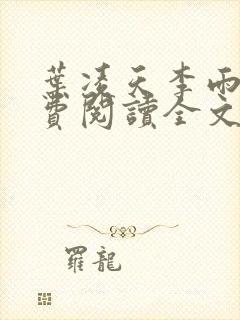 葉凌天李雨
費閱讀全文
羅龍